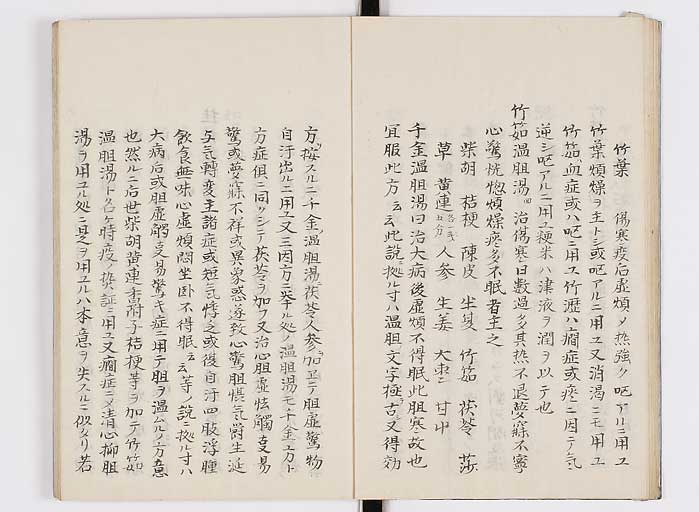 竹葉 傷寒疫后虚煩〆熱強ク呕アルニ用ユ
竹葉煩燥ヲ主トシ或呕アルニ用ユ又消渇ニモ用ユ
竹筎血症或ハ呕ニ用ユ竹瀝ハ癇症或痰ニ因テ気
逆シ呕アルニ用ユ粳米ハ津液ヲ潤ヲ以テ也
竹筎温胆湯 治傷寒日數過多其热不退夢寐不寧
心驚恍惚煩燥痰多不眠者主之
柴胡 桔梗 陳皮 半夏 竹筎 茯苓 莎
草 黄連 人参 生姜 大枣二 甘艸
千金温胆湯曰治大病後虚煩不得眠此胆寒故也
宜服此方云云此説ニ拠ル寸ハ温胆文字極古又得効
方ヲ按スルニ千金温胆湯茯苓人参ヲ加正テ胆虚驚物
自汗出ルニ用ユ又三因方ニ挙ル処ノ温胆湯モ千金ノ方ト
方症俱ニ同クシテ茯苓ヲ加フ又治心胆虚怯觸事易
驚或夢寐不祥或異象惑遂致心驚胆惧気鬱生涎
与気轉變生諸症或短気悸乏或復自汗四肢浮腫
飲食無味心虚煩悶坐卧不得眠云云等ノ説ニ拠ル寸ハ
大病后或胆虚弱事易驚キ症ニ用テ胆ヲ温ムルノ方意
也然ルニ后世柴胡黄連香附子桔梗等ヲ加テ竹筎
温胆湯ト名ケ時疫ノ熱証ニ用ユ又癇症ニメ清心抑胆
湯ヲ用ユル処ニ是ヲ用ユルハ本意ヲ失スルニ似タリ若